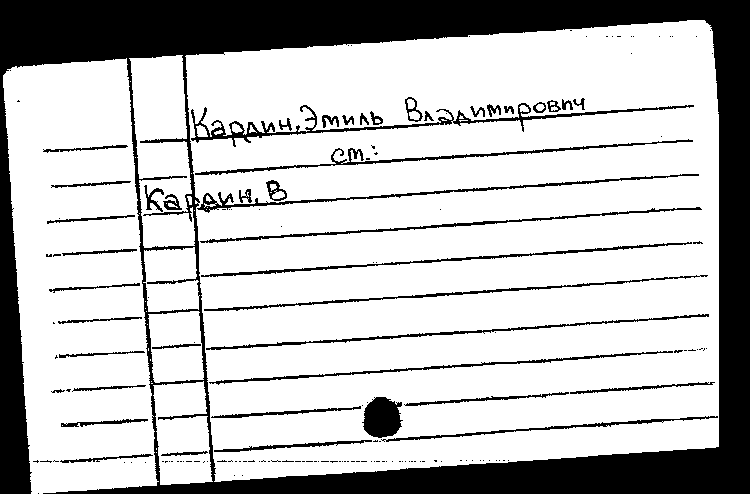 Кардин, Эмиль Владимирович
см.:
Кардин, В